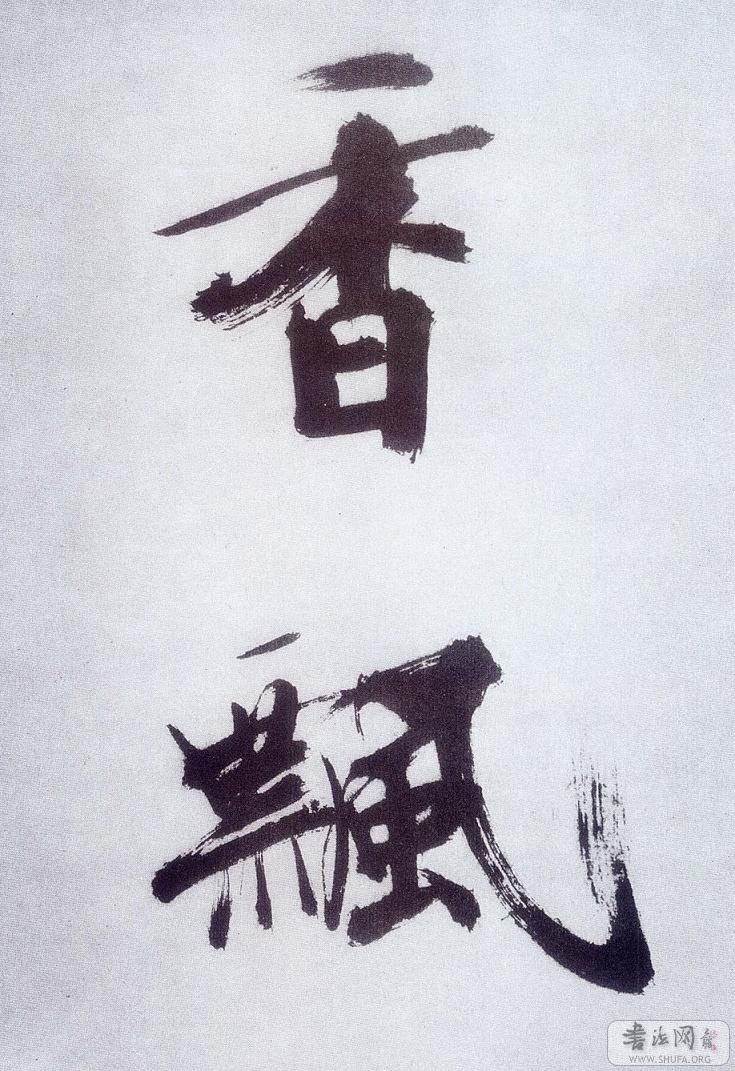 香
飄
书法网
WWW.SHUFA.ORG